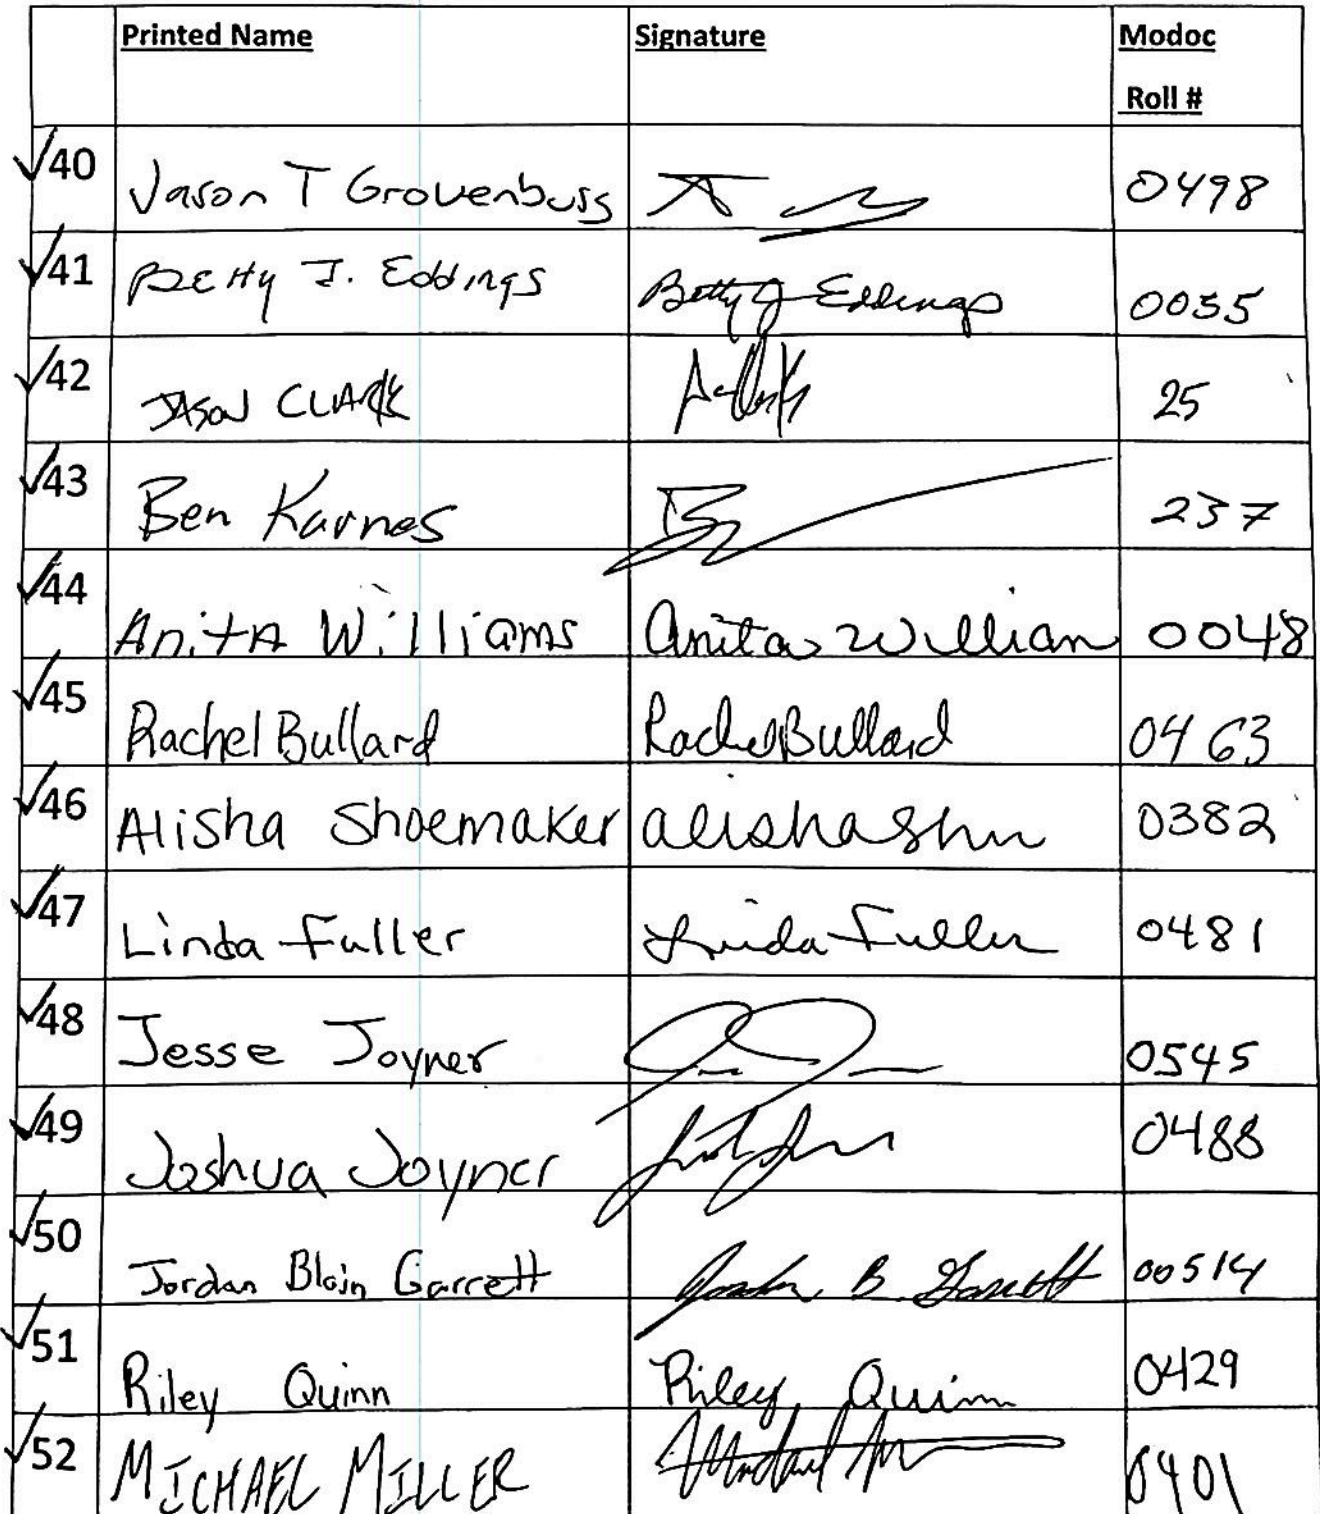 Printed Name Signature Modoc
Roll #
√40 Jason T Grovenburg 0498
√41 Betty J. Eddings Betty J Eddings 0035
√42 JASON CLARK 25
√43 Ben Karnes 237
√44 AnitA Williams Anita William 0048
√45 Rachel Bullard Rachel Bullard 0463
√46 Alisha Shoemaker 0382
√47 Linda Fuller Linda Fuller 0481
√48 Jesse Joyner 0545
√49 Joshua Joyner 0488
√50 Jordan Blain Garrett Jordan B. Garrett 00514
√51 Riley Quinn Riley Quinn 0429
√52 MICHAEL MILLER 0401